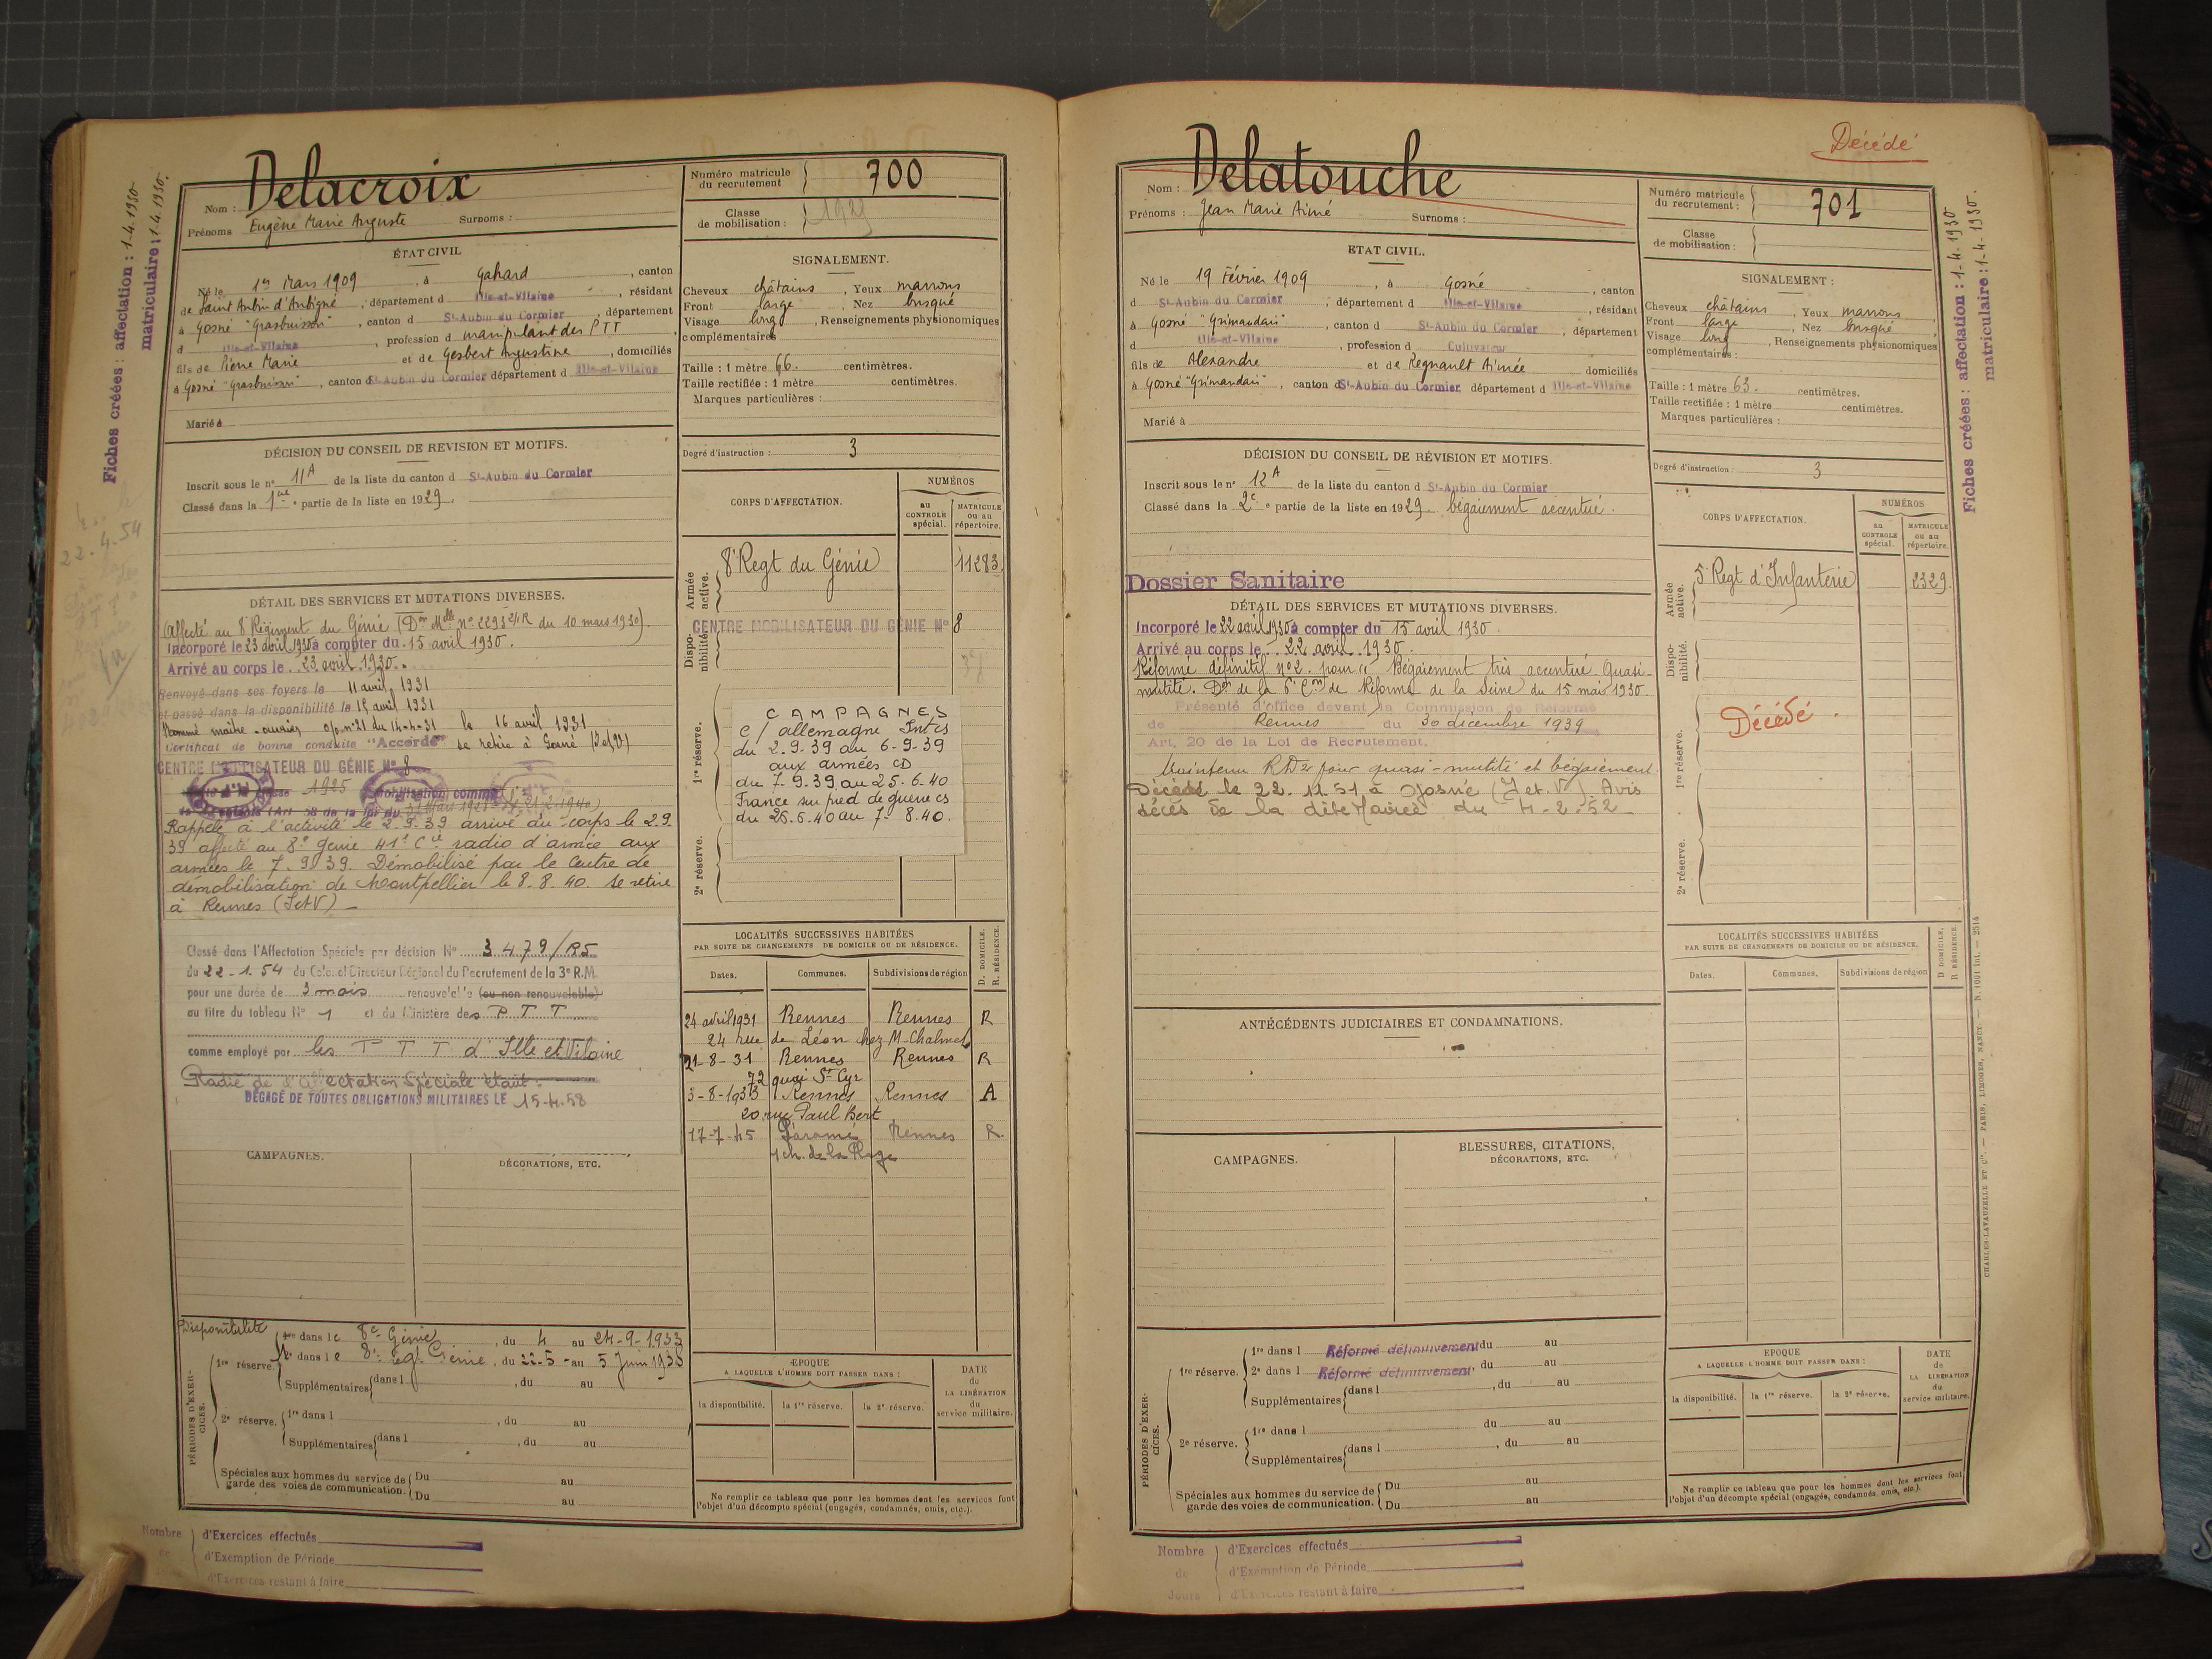 Fiches créées : affectation : 1-4.1930
matriculaire : 1-4.1930.
22.4.54
Nom : Delacroix
Prénoms Eugène Marie Auguste Surnoms :
Numéro matricule du recrutement 700
Classe de mobilisation : 1929
ÉTAT CIVIL
Né le 1er Mars 1909, à Gahard, canton
de Saint Aubin d'Aubigné, département d Ille-et-Vilaine, résidant
à Gosné "Grasbuisson", canton d St-Aubin du Cormier, département
d Ille-et-Vilaine, profession d manipulant des PTT
fils de Pierre Marie et de Gesbert Augustine, domiciliés
à Gosné "Grasbuisson", canton d St-Aubin du Cormier département d Ille-et-Vilaine
Marié à
SIGNALEMENT.
Cheveux châtains, Yeux marrons
Front large, Nez busqué
Visage long, Renseignements physionomiques
complémentaires
Taille : 1 mètre 66. centimètres.
Taille rectifiée : 1 mètre centimètres.
Marques particulières :
Degré d'instruction : 3
DÉCISION DU CONSEIL DE REVISION ET MOTIFS.
Inscrit sous le n° 11A de la liste du canton d St-Aubin du Cormier
Classé dans la 1ère partie de la liste en 1929.
CORPS D'AFFECTATION.
NUMÉROS
au CONTROLE spécial.
MATRICULE ou au répertoire.
Armée active.
8e Regt du Génie 11283
Disponibilité.
CENTRE MOBILISATEUR DU GÉNIE N° 8
1re réserve.
CAMPAGNES
c/ allemagne Intes
du 2.9.39 au 6-9-39
aux armées CD
du 7.9.39 au 25.6.40
France sur pied de guerre cs
du 26.6.40 au 7-8.40.
2e réserve.
DÉTAIL DES SERVICES ET MUTATIONS DIVERSES.
Affecté au 8e Régiment du Génie (Don Mlle n° 2293 2/R du 10 mars 1930).
Incorporé le 23 avril 1930 à compter du 15 avril 1930.
Arrivé au corps le 23 avril 1930.
Renvoyé dans ses foyers le 11 avril 1931
et passé dans la disponibilité le 15 avril 1931
Nommé maître-ouvrier o/p n°21 du 14-4-31 le 16 avril 1931
Certificat de bonne conduite "Accordé" se retire à Gosné (I et V)
CENTRE MOBILISATEUR DU GÉNIE N° 8
Rappelé à l'activité le 2.9.39 arrivé au corps le 2.9.
39 affecté au 8e génie 41e Cie radio d'armée aux
armées le 7.9.39. Démobilisé par le Centre de
démobilisation de Montpellier le 8.8.40. se retire
à Rennes (I et V) -
Classé dans l'Affectation Spéciale par décision N° 3479/R5
du 22-1.54 du Colonel Directeur Régional du Recrutement de la 3e R.M.
pour une durée de 3 mois renouvelable (ou non renouvelable)
au titre du tableau N° 1 et du Ministère des P T T
comme employé par les P T T d'Ille et Vilaine
Radié de l'affectation Spéciale étant :
DÉGAGÉ DE TOUTES OBLIGATIONS MILITAIRES LE 15-4-58
LOCALITÉS SUCCESSIVES HABITÉES
PAR SUITE DE CHANGEMENTS DE DOMICILE OU DE RÉSIDENCE.
Dates. Communes. Subdivisions de région D. DOMICILE. R. RÉSIDENCE.
24 avril 1931 Rennes Rennes R
24 rue de Léon chez M. Chalmel
21-8-31 Rennes Rennes R
72 quai St Cyr
3-8-1933 Rennes Rennes A
20 rue Paul Bert
17-7-45 Paramé Rennes R.
4 ch. de la Plage
CAMPAGNES.
DÉCORATIONS, ETC.
PÉRIODES D'EXERCICES.
Disponibilité
1re réserve.
1re dans le 8e Génie, du 4 au 24-9-1933
2e dans le 8e regt Génie, du 22-5- au 5 Juin 1938
Supplémentaires dans l , du au
2e réserve.
1re dans l , du au
Supplémentaires dans l , du au
Spéciales aux hommes du service de garde des voies de communication. Du au
Du au
EPOQUE
A LAQUELLE L'HOMME DOIT PASSER DANS :
la disponibilité. la 1re réserve. la 2e réserve.
DATE de LA LIBÉRATION du service militaire.
Ne remplir ce tableau que pour les hommes dont les services font
l'objet d'un décompte spécial (engagés, condamnés, omis, etc.).
Nombre de
d'Exercices effectués
d'Exemption de Période
d'Exercices restant à faire
Décédé
Nom : Delatouche
Prénoms : Jean Marie Aimé Surnoms :
Numéro matricule du recrutement : 701
Classe de mobilisation :
ETAT CIVIL.
Né le 19 Février 1909, à Gosné, canton
d St-Aubin du Cormier, département d Ille-et-Vilaine, résidant
à Gosné "Grimaudais", canton d St-Aubin du Cormier, département
d Ille-et-Vilaine, profession d Cultivateur
fils de Alexandre et de Regnault Aimée domiciliés
à Gosné "Grimaudais", canton d St-Aubin du Cormier, département d Ille-et-Vilaine
Marié à
SIGNALEMENT :
Cheveux châtains, Yeux marrons
Front large, Nez busqué
Visage long, Renseignements physionomiques
complémentaires :
Taille : 1 mètre 63. centimètres.
Taille rectifiée : 1 mètre centimètres.
Marques particulières :
Degré d'instruction : 3
Fiches créées : affectation : 1-4-1930
matriculaire : 1-4-1930.
DÉCISION DU CONSEIL DE RÉVISION ET MOTIFS.
Inscrit sous le n° 12A de la liste du canton d St-Aubin du Cormier
Classé dans la 2e partie de la liste en 1929. bégaiement accentué.
Dossier Sanitaire
CORPS D'AFFECTATION.
NUMÉROS
au CONTROLE spécial.
MATRICULE ou au répertoire.
Armée active.
5e Regt d'Infanterie 2329.
Disponibilité.
1re réserve.
Décédé.
2e réserve.
DÉTAIL DES SERVICES ET MUTATIONS DIVERSES.
Incorporé le 22 avril 1930 à compter du 15 avril 1930.
Arrivé au corps le 22 avril 1930.
Réformé définitif n°2. pour "Bégaiement très accentué Quasi-
mutité. Don de la 6e Con de Réforme de la Seine du 15 mai 1930.
Présenté d'office devant la Commission de Réforme
de Rennes du 30 décembre 1939
Art. 20 de la Loi de Recrutement.
Maintenu RD2 pour quasi-mutité et bégaiement.
Décédé le 22.11.51 à Gosné (I et V) Avis
décès de la dite Mairie du 4-2-52
ANTÉCÉDENTS JUDICIAIRES ET CONDAMNATIONS.
CAMPAGNES.
BLESSURES, CITATIONS,
DÉCORATIONS, ETC.
LOCALITÉS SUCCESSIVES HABITÉES
PAR SUITE DE CHANGEMENTS DE DOMICILE OU DE RÉSIDENCE.
Dates. Communes. Subdivisions de région D DOMICILE, R RÉSIDENCE.
PÉRIODES D'EXERCICES.
1re réserve.
1re dans l Réformé définitivement du au
2e dans l Réformé définitivement, du au
Supplémentaires dans l , du au
2e réserve.
1re dans l du au
Supplémentaires dans l , du au
Spéciales aux hommes du service de garde des voies de communication. Du au
Du au
EPOQUE
A LAQUELLE L'HOMME DOIT PASSER DANS :
la disponibilité. la 1re réserve. la 2e réserve.
DATE de LA LIBÉRATION du service militaire.
Ne remplir ce tableau que pour les hommes dont les services font
l'objet d'un décompte spécial (engagés, condamnés, omis, etc.).
CHARLES-LAVAUZELLE ET Cie. — PARIS, LIMOGES, NANCY.
Nombre de Jours
d'Exercices effectués
d'Exemption de Période
d'Exercices restant à faire